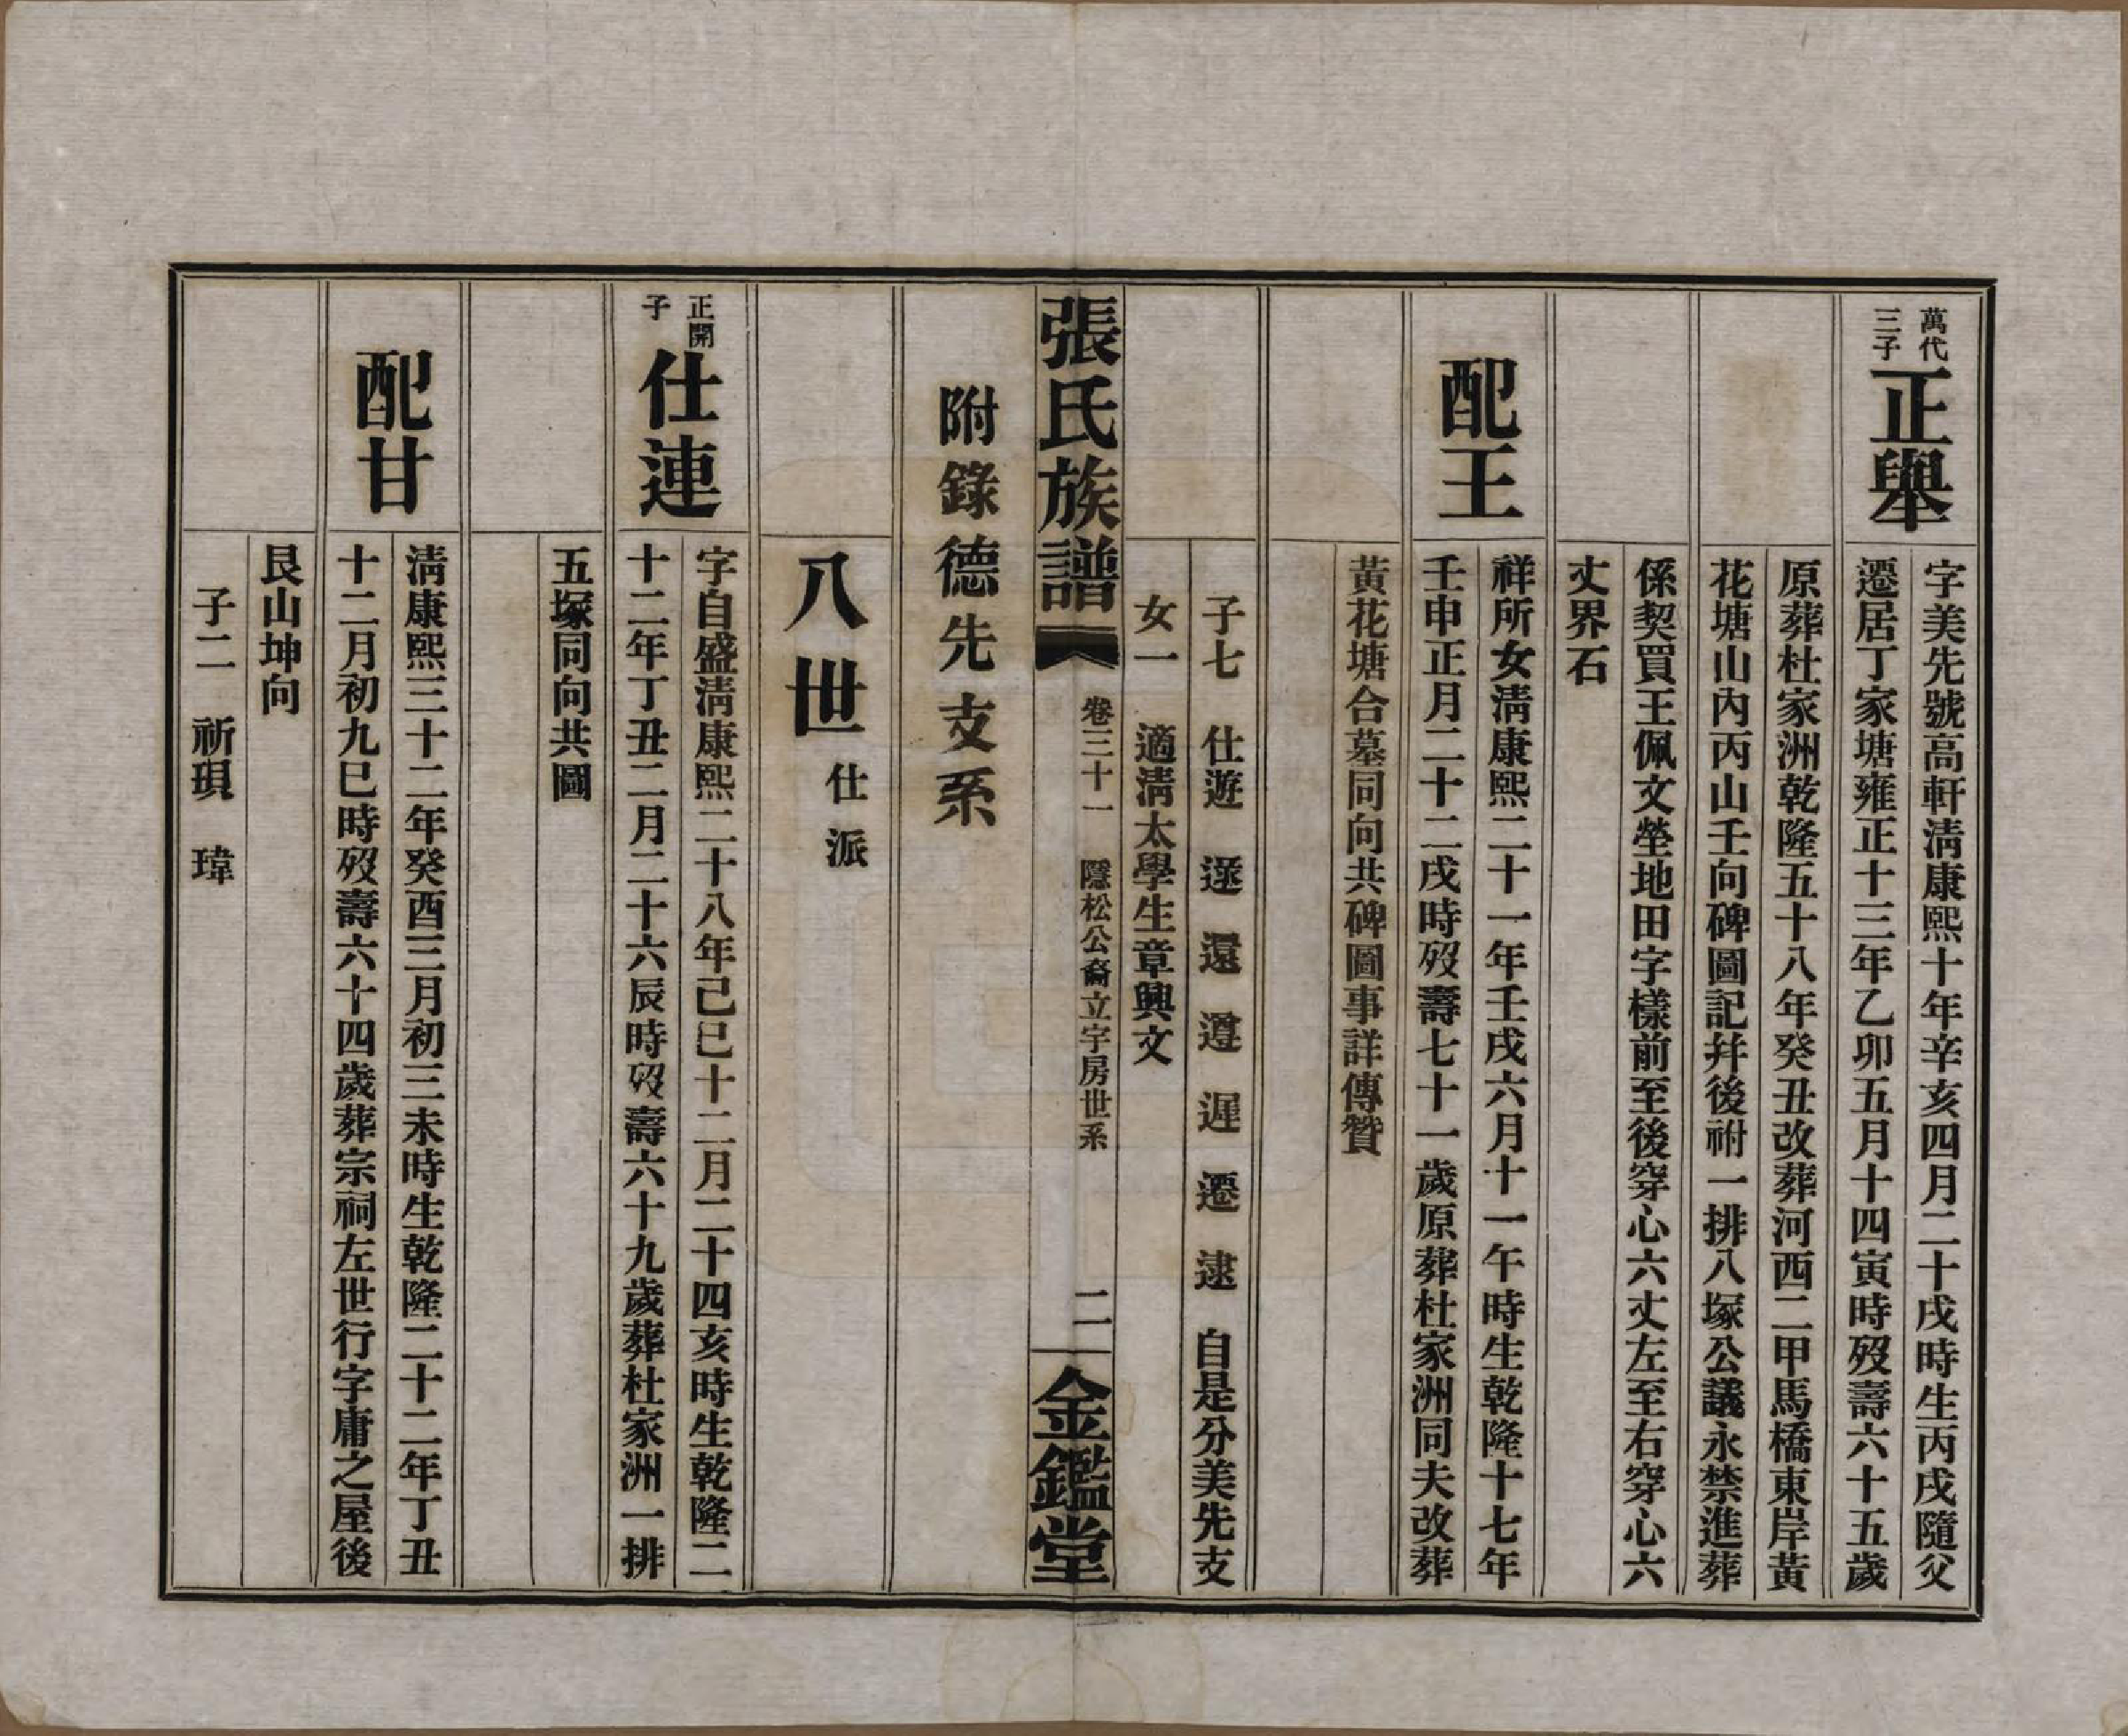 萬代
三子
正舉
字美先號高軒淸康熙十年辛亥四月二十戌時生丙戌隨父
遷居丁家塘雍正十三年乙卯五月十四寅時歿壽六十五歲
原葬杜家洲乾隆五十八年癸丑改葬河西二甲馬橋東岸黃
花塘山內丙山壬向碑圖記幷後祔一排八塚公議永禁進葬
係契買王佩文塋地田字樣前至後穿心六丈左至右穿心六
丈界石
配王
祥所女淸康熙二十一年壬戌六月十一午時生乾隆十七年
壬申正月二十二戌時歿壽七十一歲原葬杜家洲同夫改葬
黃花塘合墓同向共碑圖事詳傳贊
子七 仕遊 遜 還 遵 遲 遷 逮 自是分美先支
女一 適淸太學生章興文
張氏族譜 卷三十一 隱松公裔立字房世系 二 金鑑堂
附錄德先支系
八世 仕派
正開
子
仕連
字自盛淸康熙二十八年己巳十二月二十四亥時生乾隆二
十二年丁丑二月二十六辰時歿壽六十九歲葬杜家洲一排
五塚同向共圖
配甘
淸康熙三十二年癸酉三月初三未時生乾隆二十二年丁丑
十二月初九巳時歿壽六十四歲葬宗祠左世行字庸之屋後
艮山坤向
子二 祈珼 瑋